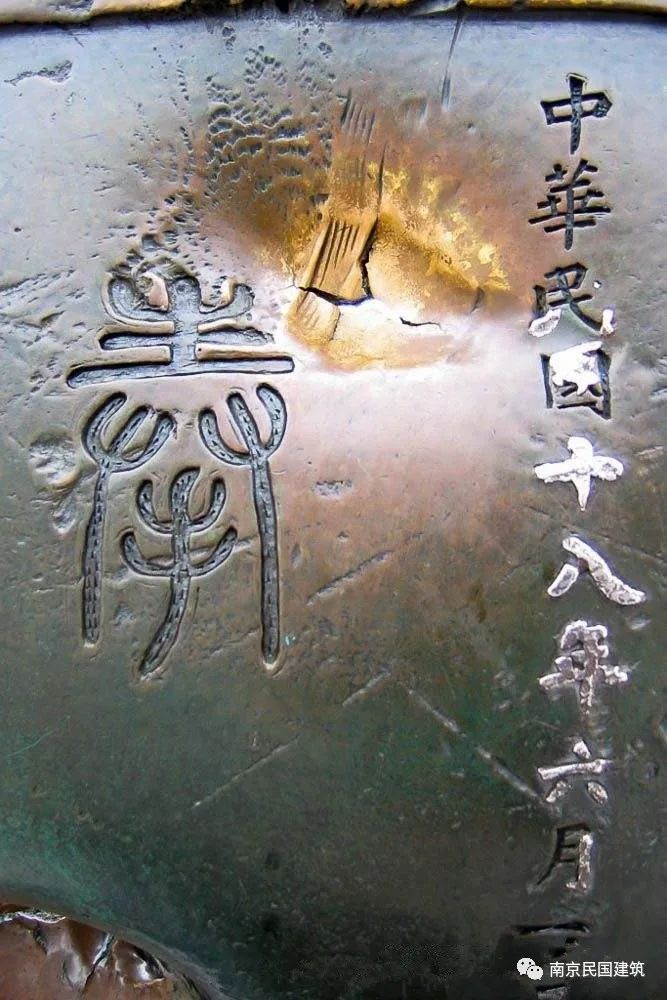 中華民國十八年六月一日
奉
南京民国建筑